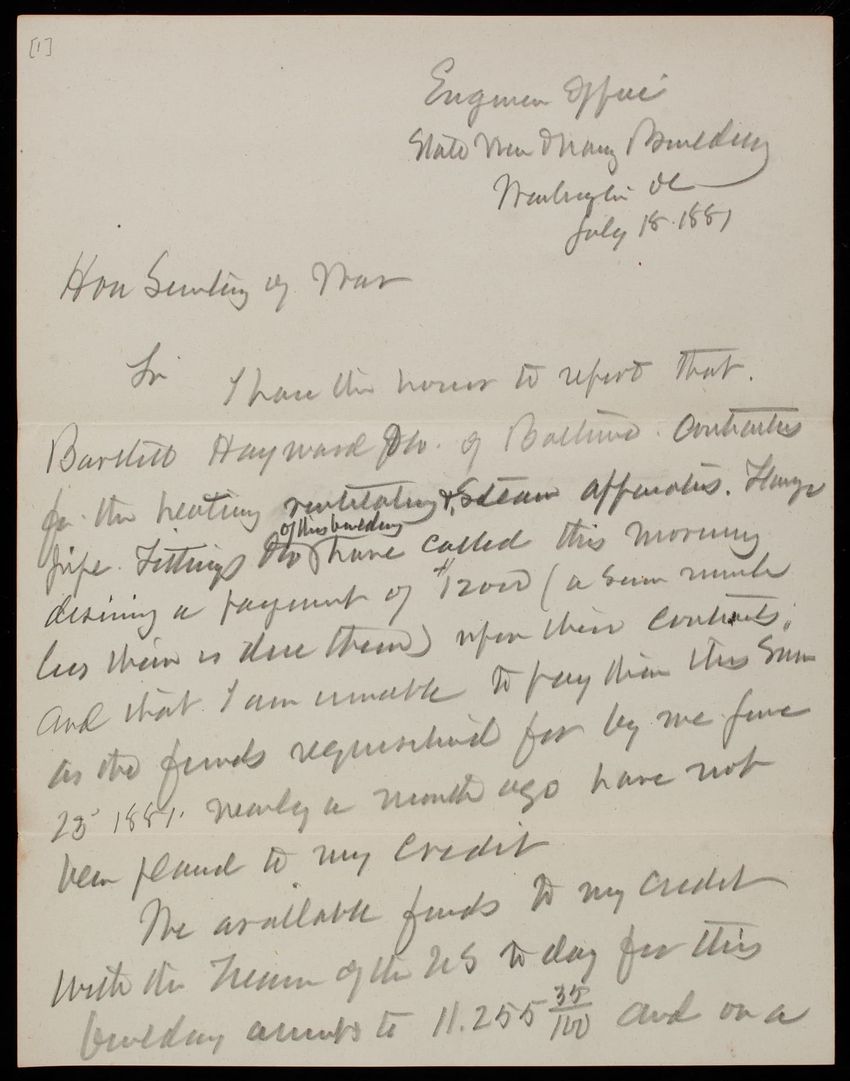 [1]
Engineer Office
State War & Navy Building
Washington DC
July 18. 1881
Hon Secretary of War
Sir I have the honor to report that.
Bartlett Hayward & Co. of Baltimore. Contractors
for the heating ventilating & Steam apparatus. Flange
pipe. Fittings &c of this building have called this morning
desiring a payment of $12000 (a sum much
less than is due them) upon their Contracts,
and that I am unable to pay them this Sum
as the funds requisitioned for by me June
23 1881. nearly a month ago have not
been placed to my credit
The available funds to my credit
with the Treasr of the US to day for this
building amounts to 11.255 35/100 and on a